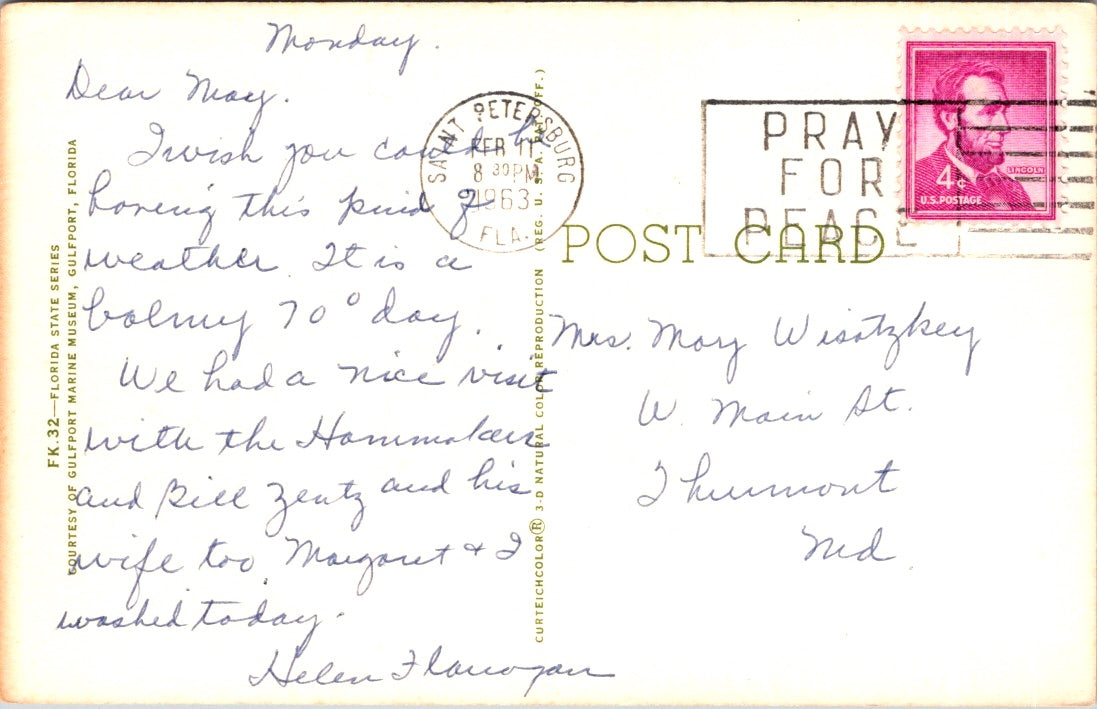 Monday.
Dear Mary.
I wish you could be
having this kind of
weather. It is a
balmy 70° day.
We had a nice visit
with the Hammakers
and Bill Zentz and his
wife too. Margaret & I
washed today.
Helen Flanogan
FK.32—FLORIDA STATE SERIES
COURTESY OF GULFPORT MARINE MUSEUM, GULFPORT, FLORIDA
SAINT PETERSBURG
FEB 11
8 30 PM
1963
FLA.
CURTEICHCOLOR® 3-D NATURAL COLOR REPRODUCTION (REG. U.S.A. PAT. OFF.)
PRAY
FOR
PEACE
4¢
LINCOLN
U.S. POSTAGE
POST CARD
Mrs. Mary Wisotzkey
W. Main St.
Thurmont
Md.